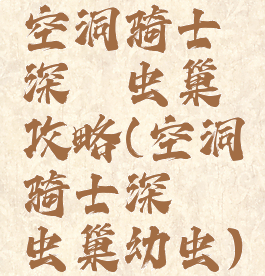 空洞骑士
深 虫巢
攻略(空洞
骑士深
虫巢幼虫)